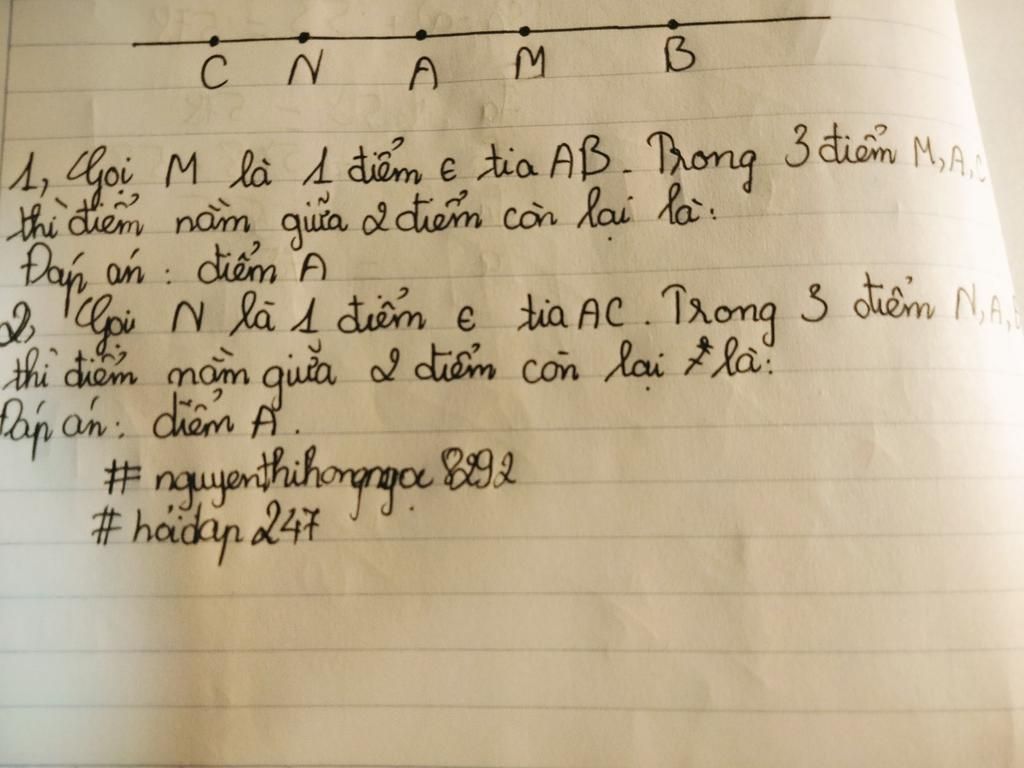 C N A M B
1, Gọi M là 1 điểm ∈ tia AB. Trong 3 điểm M, A, C
thì điểm nằm giữa 2 điểm còn lại là:
Đáp án: điểm A
2, Gọi N là 1 điểm ∈ tia AC. Trong 3 điểm N, A, B
thì điểm nằm giữa 2 điểm còn lại là:
Đáp án: điểm A.
# nguyenthihongngoc8292
# hỏidap247